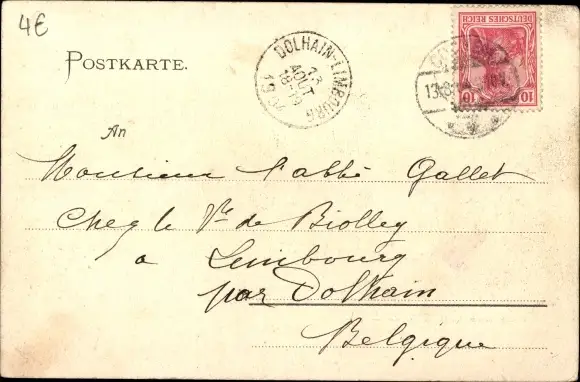 4€
POSTKARTE.
DOLHAIN-LIMBOURG
13
AOUT
18-19
DEUTSCHES REICH
10 10
13.8.
An
Monsieur l'abbé Gallet
Chez le Vte de Biolley
a Limbourg
par Dolhain
Belgique